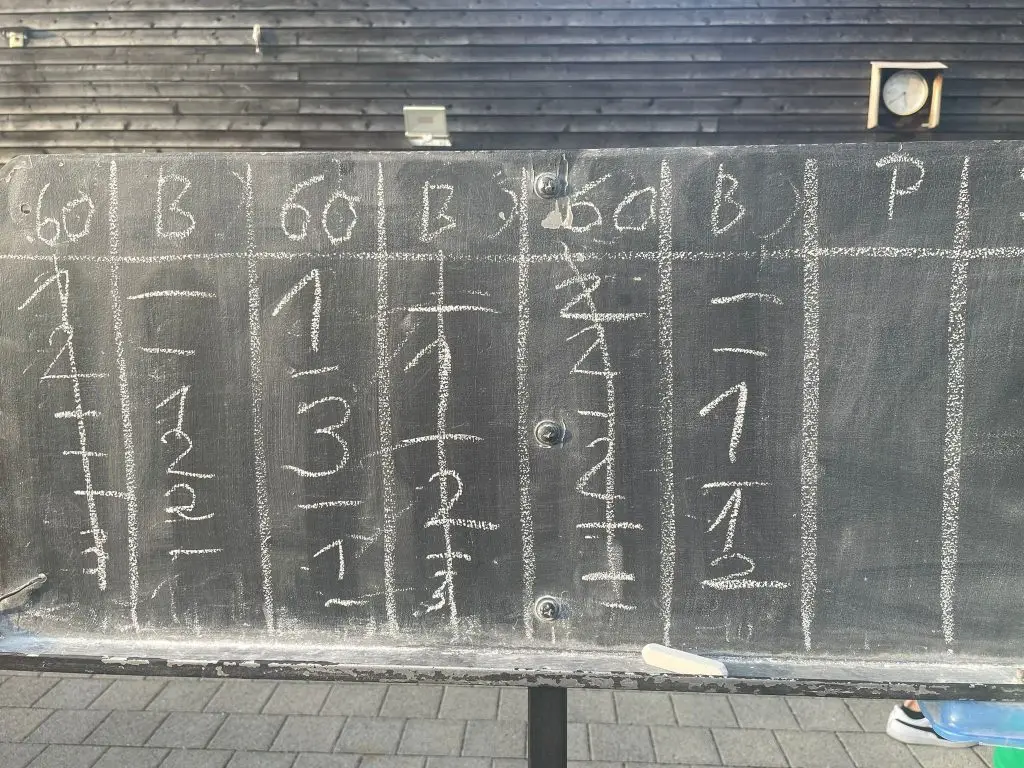 60 B 60 B 60 B P
1 — 1 — 2 —
2 — — 1 2 —
— 1 3 — — 1
— 2 — 2 2 —
— 2 1 — — 1
3 — — — — 2
3 —